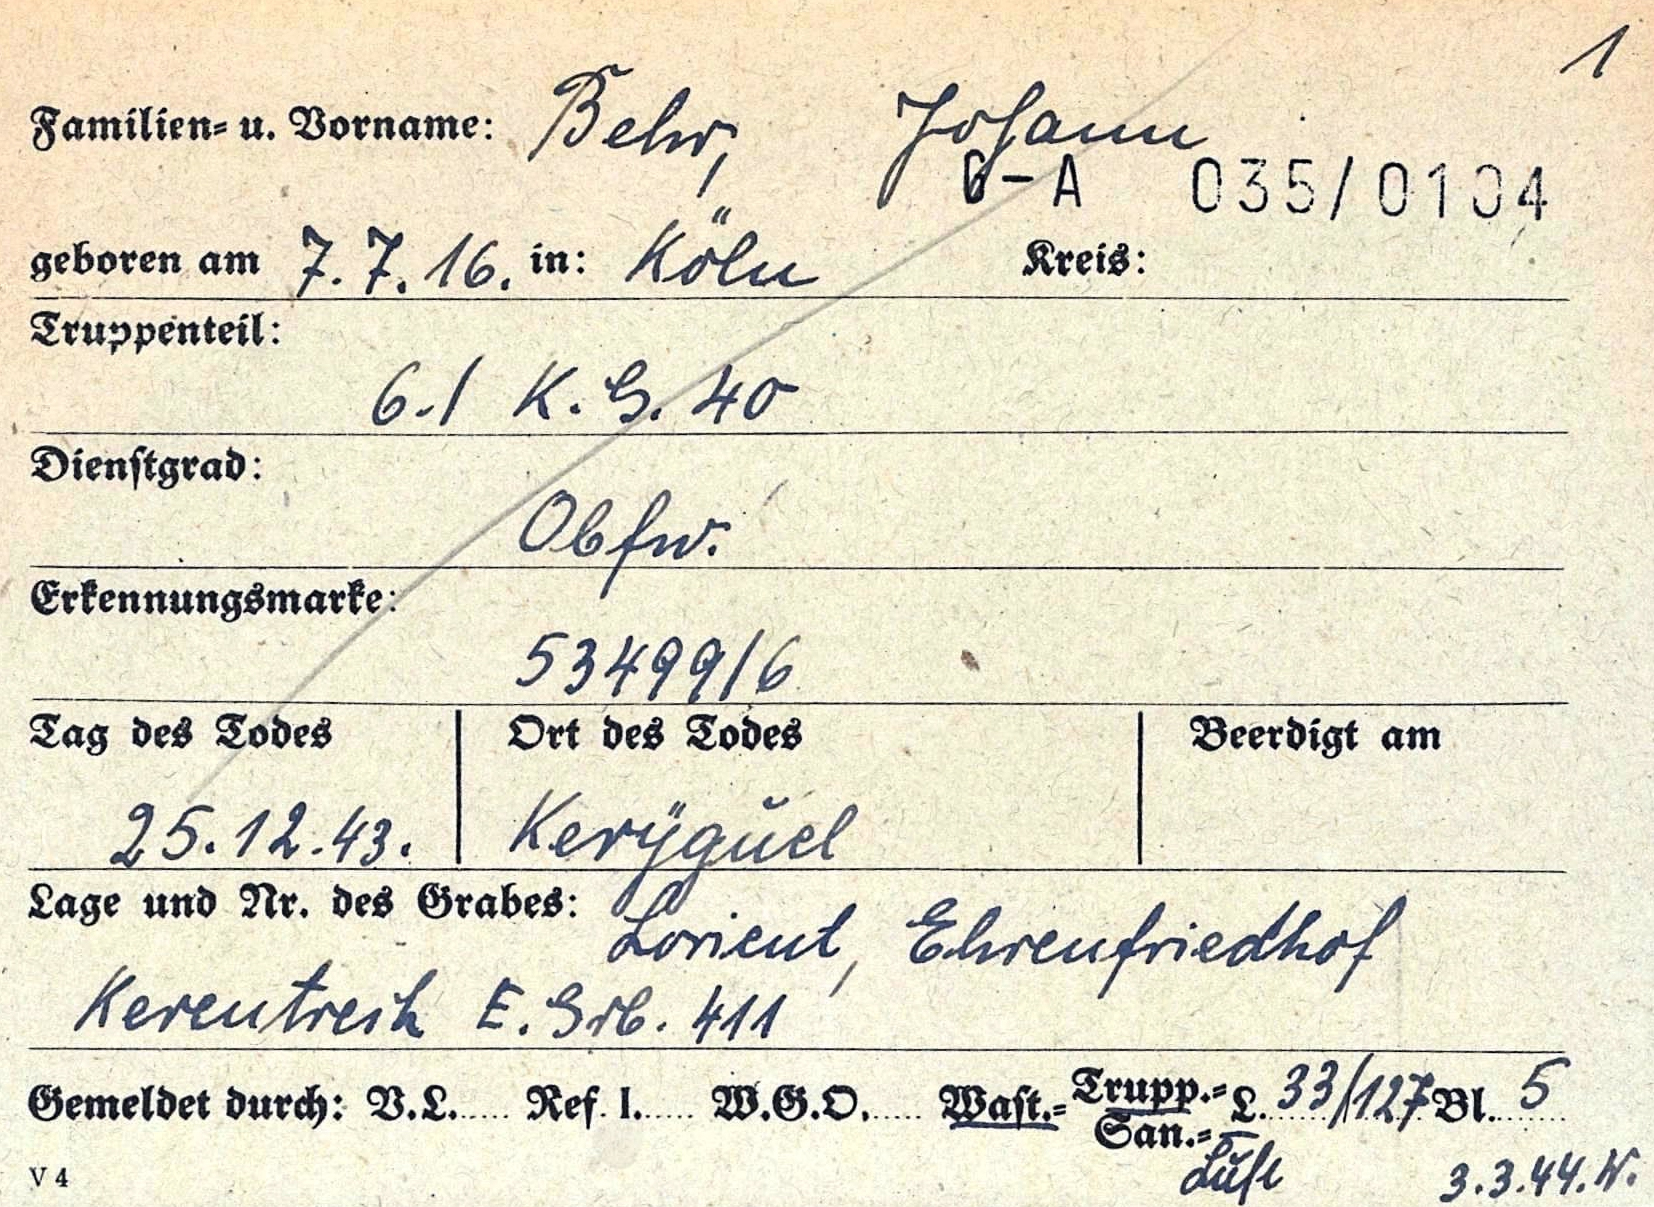 1
Familien- u. Vorname: Behr, Johann
G-A 035/0104
geboren am 7.7.16. in: Köln Kreis:
Truppenteil:
6./ K.G. 40
Dienstgrad:
Obfw.
Erkennungsmarke:
53499/6
Tag des Todes Ort des Todes Beerdigt am
25.12.43. Kerÿguel
Lage und Nr. des Grabes: Lorient, Ehrenfriedhof
Kerentrech E. Grb. 411
Gemeldet durch: V.L..... Ref. I..... W.G.O..... Wast.- Trupp.- L. 33/127 Bl. 5
San.-
Luft 3.3.44. W.
V 4